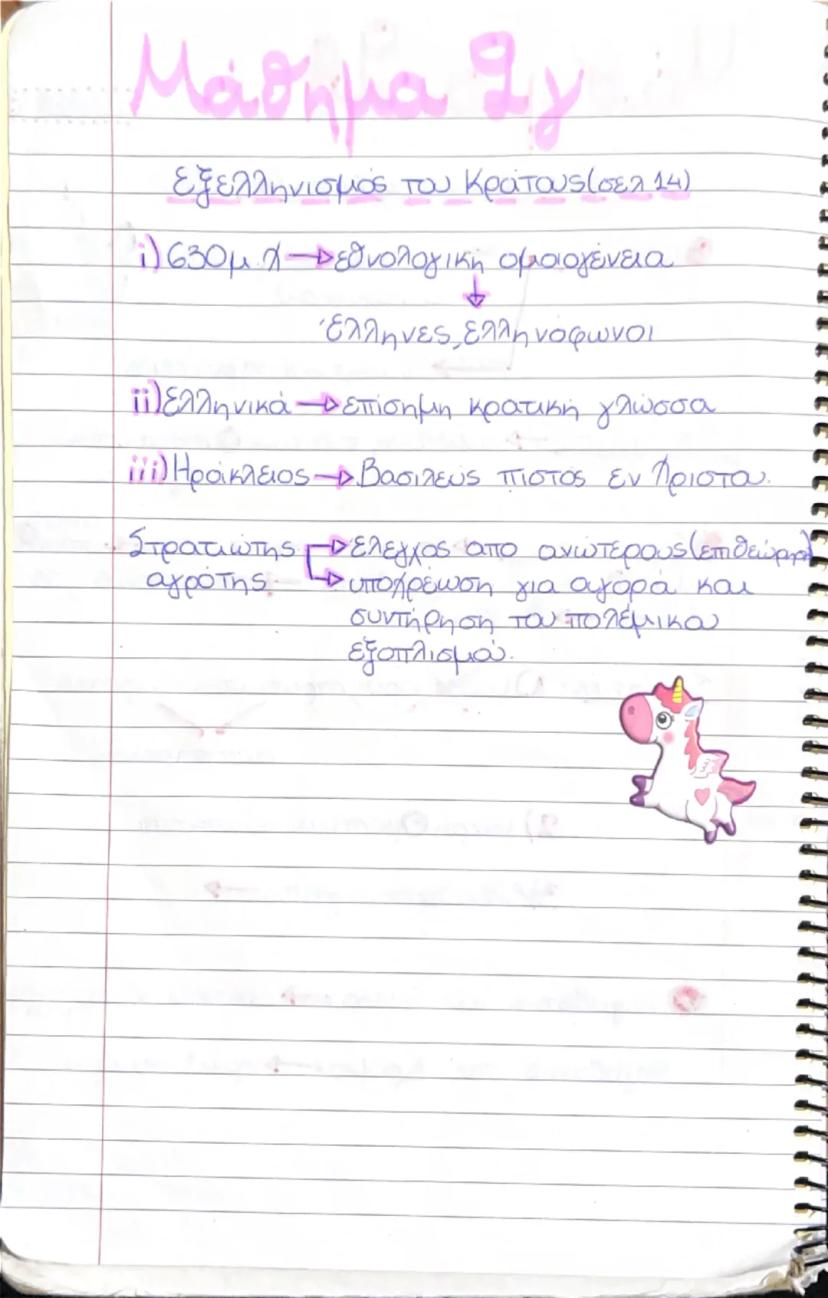 Μάθημα 2γ
Εξελληνισμός του Κράτους (σελ 14)
i) 630μ.Χ → εθνολογική ομοιογένεια
↓
Έλληνες, ελληνόφωνοι
ii) Ελληνικά → επίσημη κρατική γλώσσα
iii) Ηράκλειος → Βασιλεύς πιστός εν Χριστώ.
Στρατιώτης → έλεγχος από ανώτερους (επιθεώρηση)
αγρότης → υποχρέωση για αγορά και
συντήρηση του πολεμικού
εξοπλισμού.